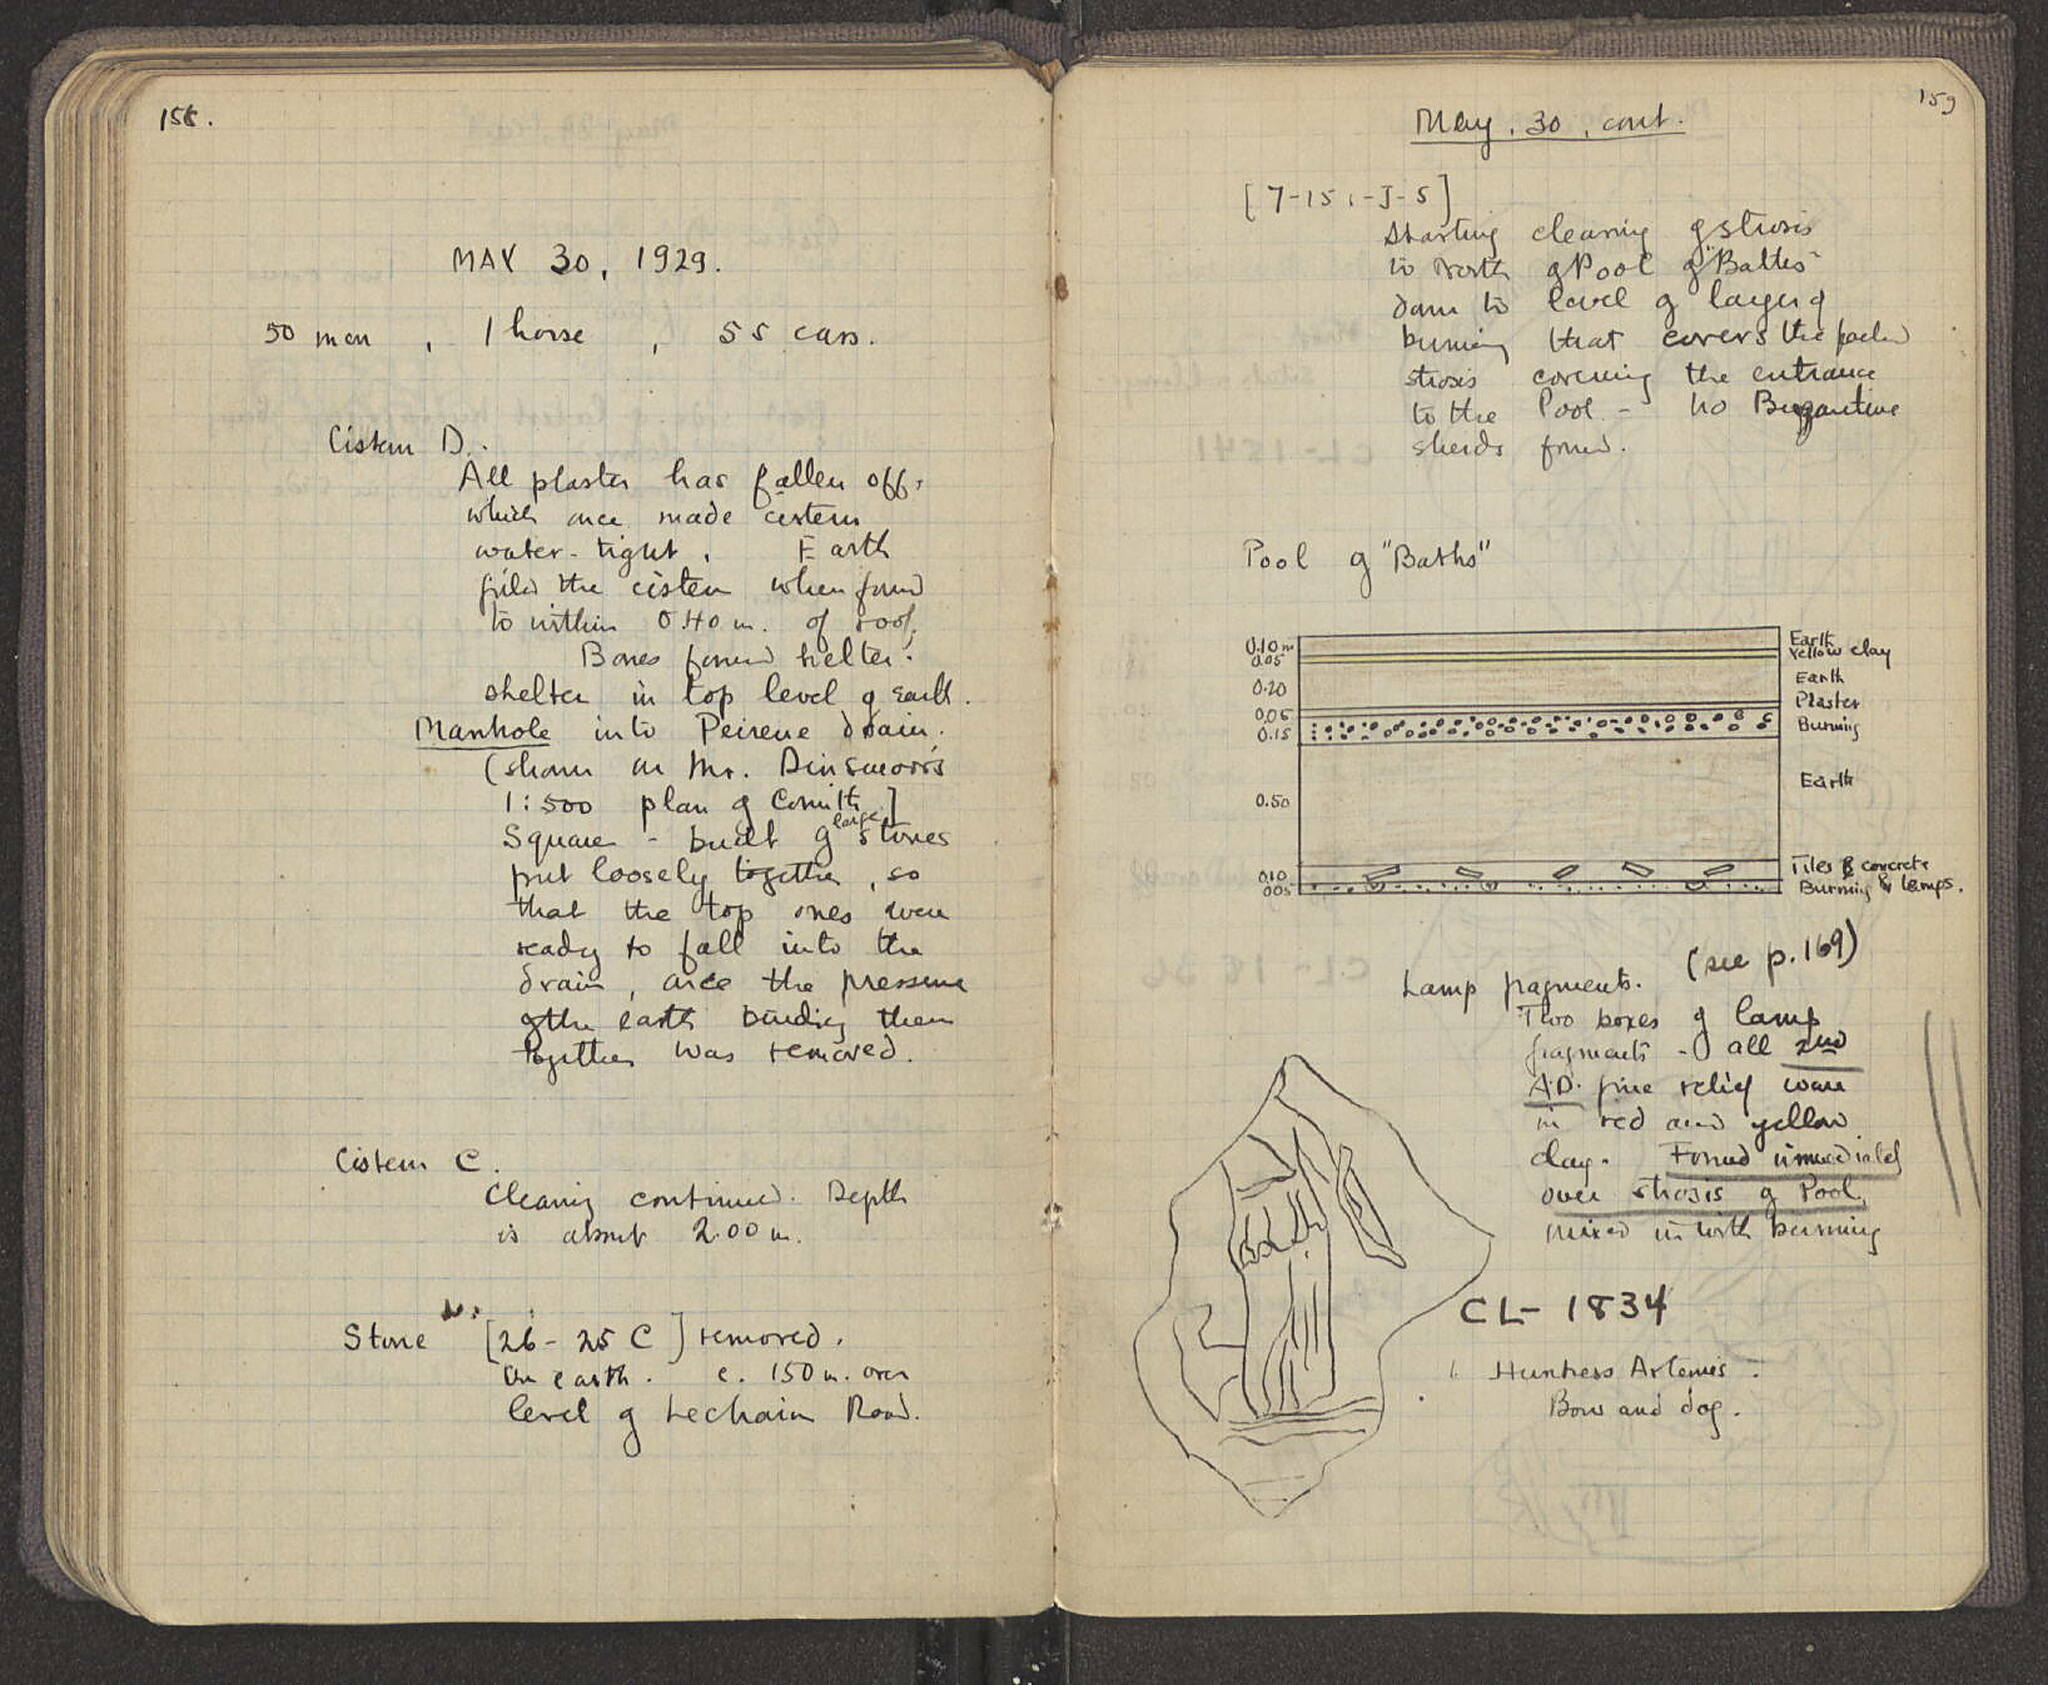 158.
MAY 30, 1929.
50 men , 1 horse , 55 cars.
Cistern D.
All plaster has fallen off,
which once made cistern
water-tight. Earth
filled the cistern when found
to within 0.40 m. of roof.
Bones found helter-
skelter in top level of earth.
Manhole into Peirene drain.
(shown on Mr. Dinsmoor's
1:500 plan of Corinth]
Square - built of large stones
put loosely together, so
that the top ones were
ready to fall into the
drain, once the pressure
of the earth binding them
together was removed.
Cistern C.
Cleaning continued. Depth
is about 2.00 m.
Stone [26-25 C] removed.
On earth. c. 1.50 m. over
level of Lechaion Road.
159
May 30, cont.
[7-15:-J-S]
Starting cleaning of strosis
to North of Pool of "Baths"
down to level of layer of
burning that covers the packed
strosis covering the entrance
to the Pool - no Byzantine
sherds found.
Pool of "Baths"
0.10 m Earth
0.05 Yellow clay
0.20 Earth
0.05 Plaster
0.15 Burning
0.50 Earth
0.10 Tiles & concrete
0.05 Burning & lamps.
Lamp fragments. (see p. 169)
Two boxes of lamp
fragments - all 2nd
A.D. fine relief ware
in red and yellow
clay. Found immediately
over strosis of Pool,
mixed in with burning
CL- 1834
Huntress Artemis:
Bow and dog.